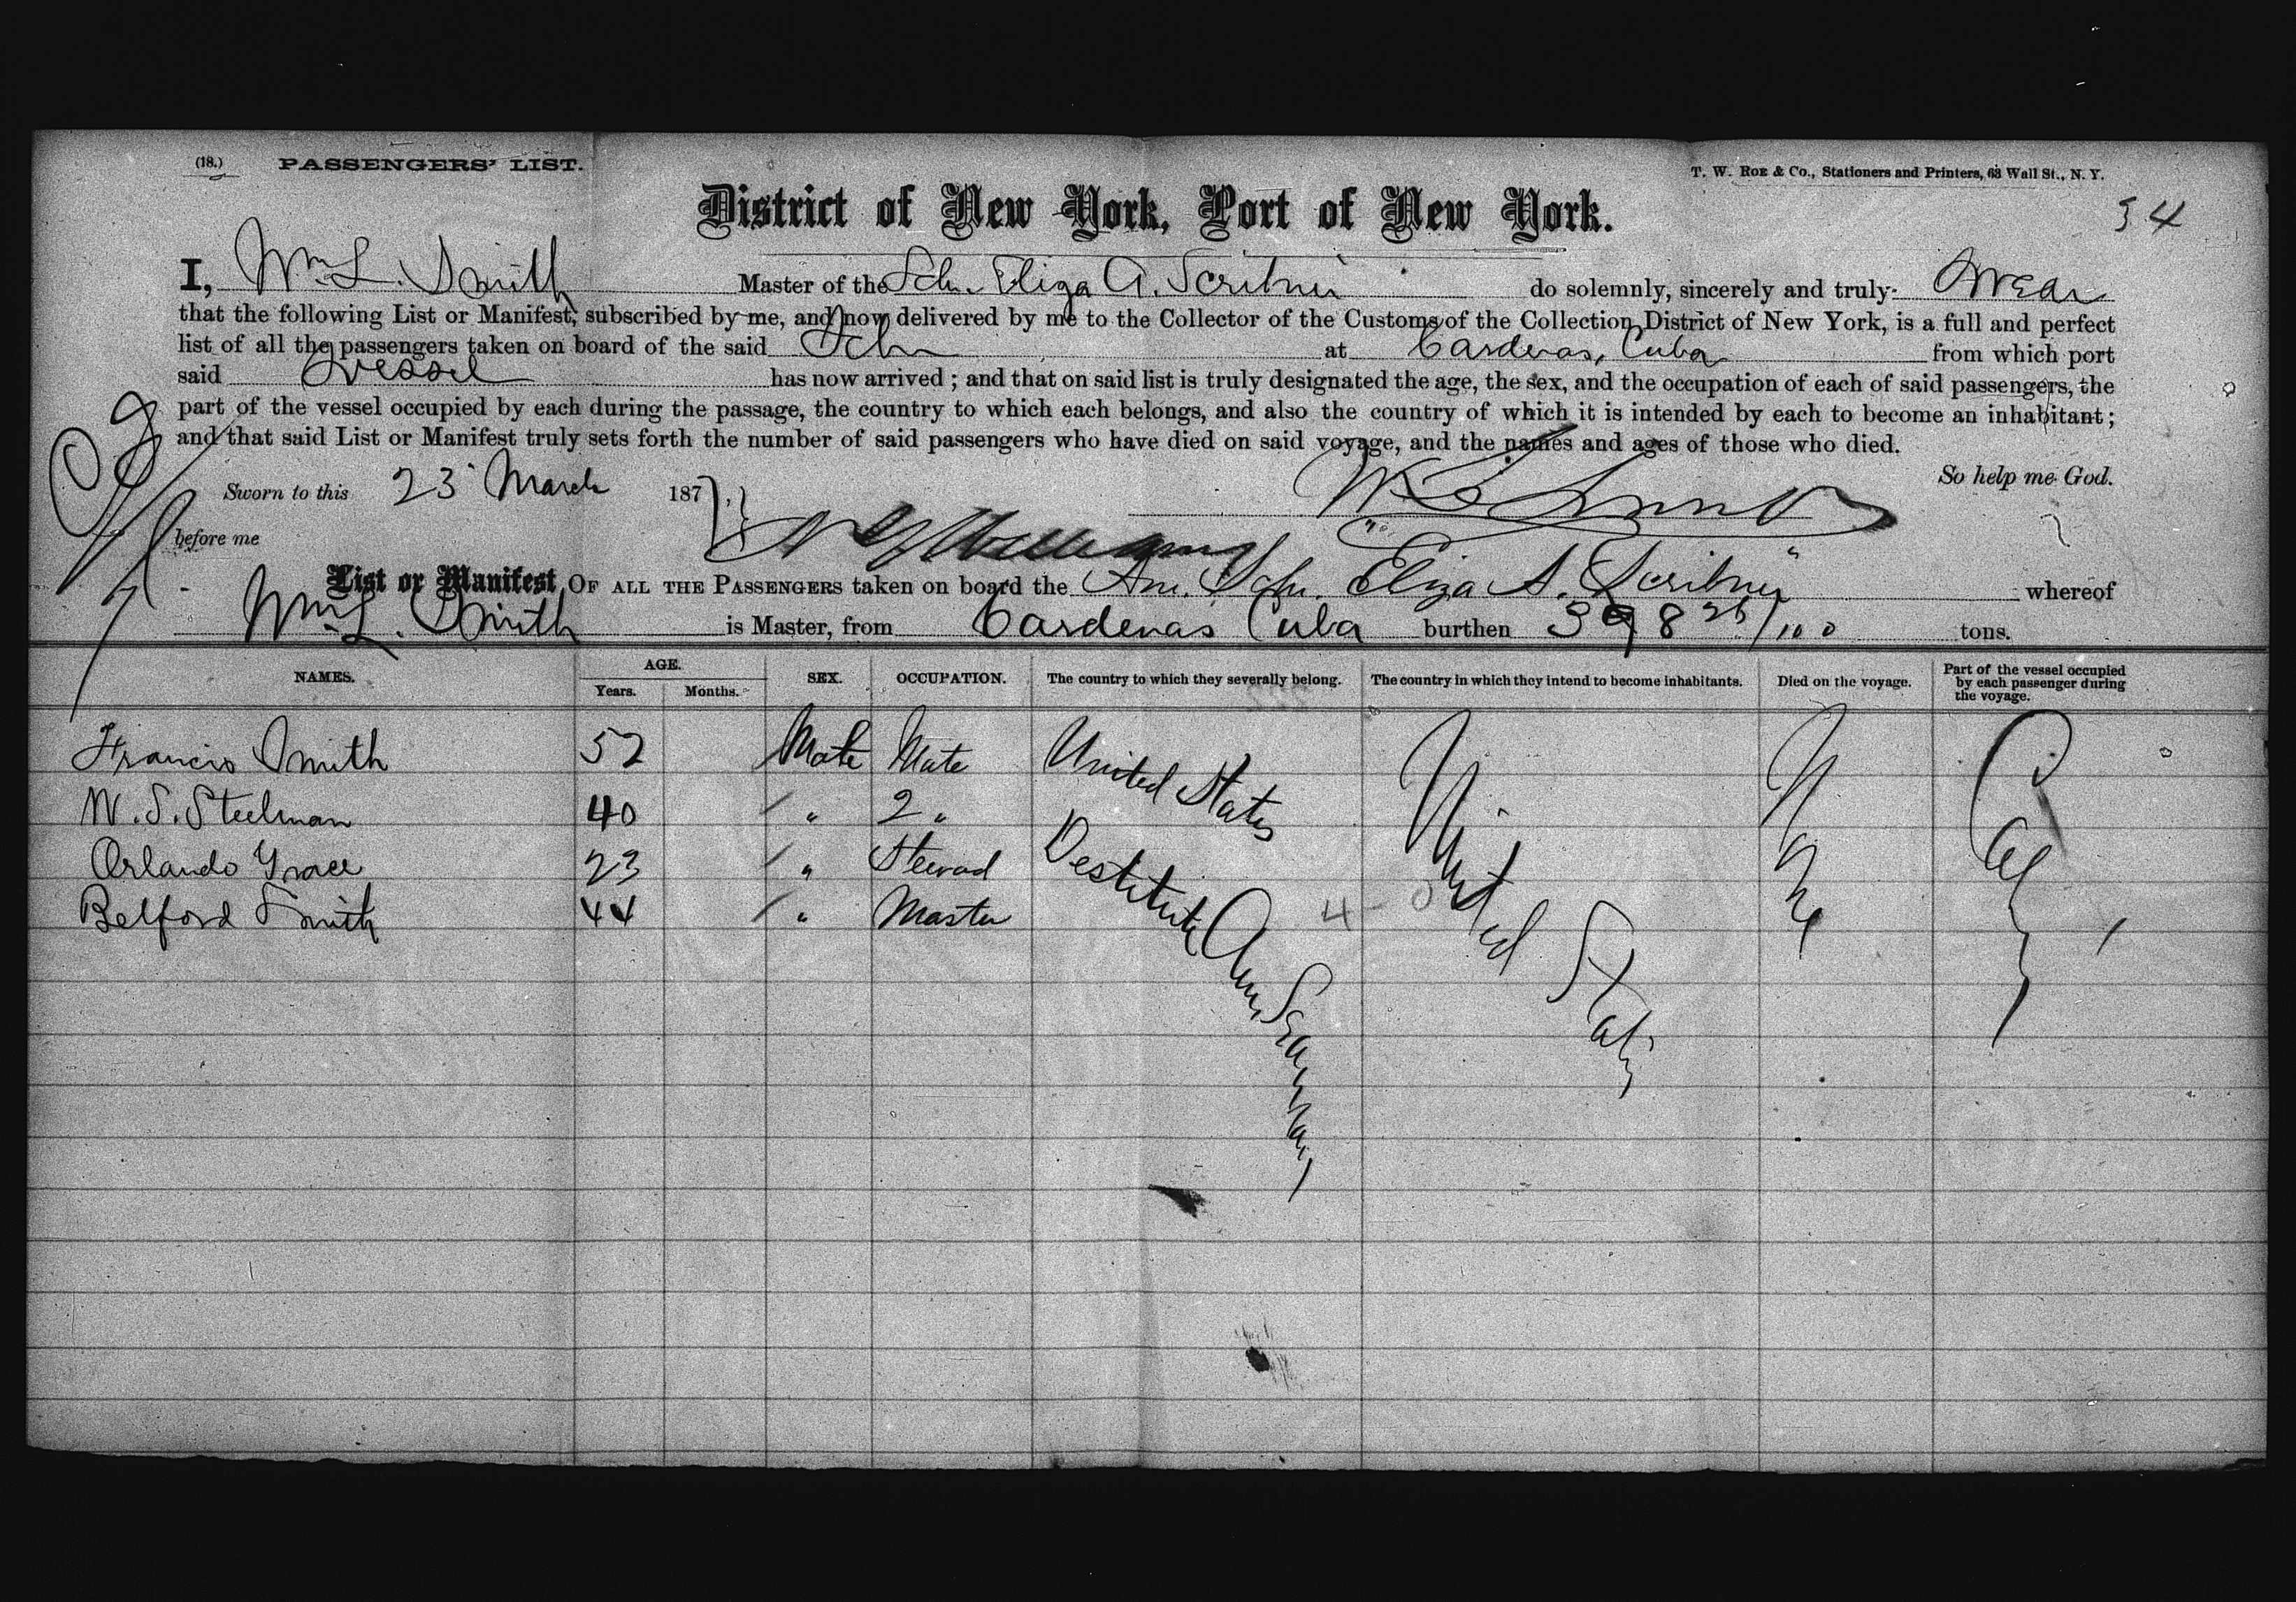 (18.) PASSENGERS' LIST. T. W. ROE & CO., Stationers and Printers, 63 Wall St., N. Y.
District of New York, Port of New York. 34
I, Wm L. Smith Master of the Sch. Eliza A. Scribner do solemnly, sincerely and truly Swear
that the following List or Manifest, subscribed by me, and now delivered by me to the Collector of the Customs of the Collection District of New York, is a full and perfect
list of all the passengers taken on board of the said Schr at Cardenas, Cuba from which port
said Vessel has now arrived ; and that on said list is truly designated the age, the sex, and the occupation of each of said passengers, the
part of the vessel occupied by each during the passage, the country to which each belongs, and also the country of which it is intended by each to become an inhabitant ;
and that said List or Manifest truly sets forth the number of said passengers who have died on said voyage, and the names and ages of those who died.
So help me God.
Sworn to this 23 March 187
before me
List or Manifest OF ALL THE PASSENGERS taken on board the Am. Schr. "Eliza A. Scribner" whereof
Wm L. Smith is Master, from Cardenas Cuba burthen 398 26/100 tons.
NAMES. AGE. Years. Months. SEX. OCCUPATION. The country to which they severally belong. The country in which they intend to become inhabitants. Died on the voyage. Part of the vessel occupied by each passenger during the voyage.
Francis Smith 52 Male Mate United States
W. S. Steelman 40 " 2 "
Orlando Grace 23 " Steward Destitute Am Seaman
Belford Smith 44 " Master 4-0 United States